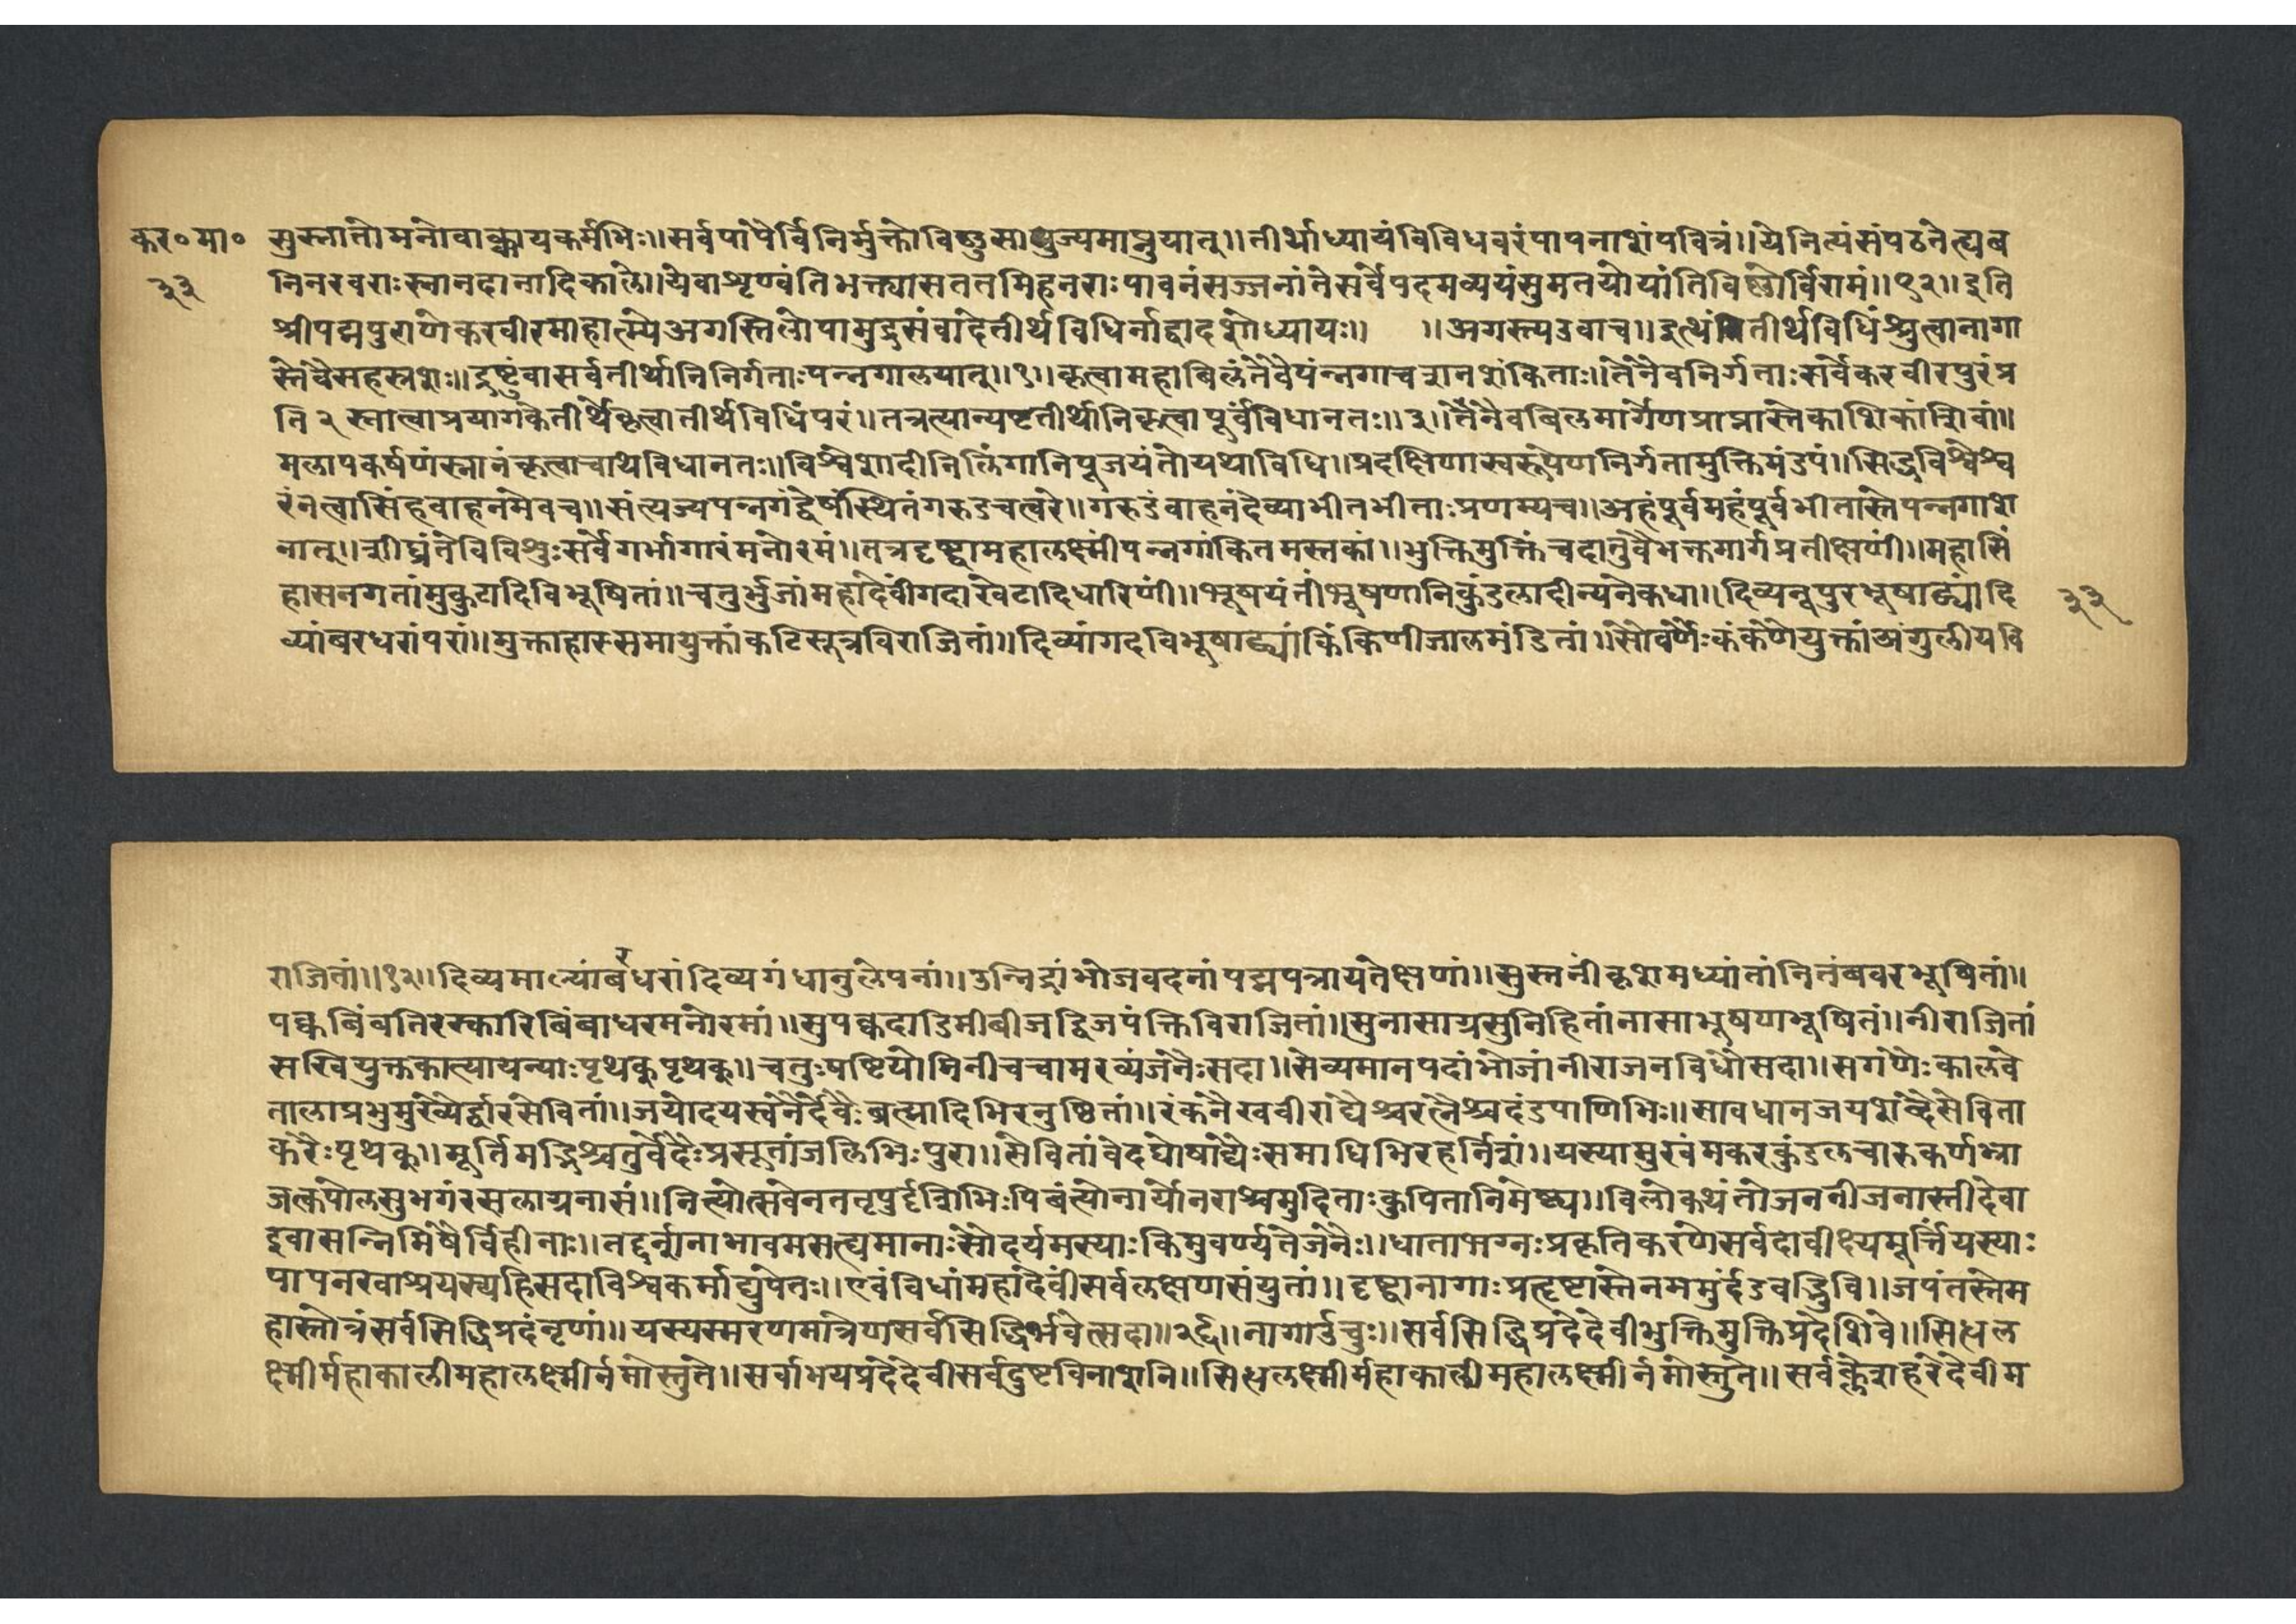 कर० मा० सुस्नातोमनोवाक्कायकर्मभिः॥सर्वपापैर्विनिर्मुक्तोविष्णुसायुज्यमाप्नुयात्॥तीर्थाध्यायंविविधवरंपापनाशंपवित्रं॥येनित्यंसंपठनेत्यब
३३ निनरवराःस्नानदानादिकाले॥येवाशृण्वंतिभक्त्यासततमिहनराःपावनंसज्जनांतेसर्वेपदमव्ययंसुमतयोयांतिविष्णोर्विरामं॥१२॥इति
श्रीपद्मपुराणेकरवीरमाहात्म्येअगस्तिलोपामुद्रसंवादेतीर्थविधिर्नाद्वादशोध्यायः॥ ॥अगस्त्यउवाच॥इत्थंतीर्थविधिंश्रुत्वानागा
स्तेवैसहस्रशः॥द्रष्टुंवासर्वतीर्थानिनिर्गताःपन्नगालयात्॥१॥कृत्वामहाबिलंतेवैपंन्नगाचरानशंकिताः॥तेनैवनिर्गताःसर्वेकरवीरपुरंप्र
ति२ स्नात्वाप्रयागकेतीर्थेकृत्वातीर्थविधिंपरं॥तत्रत्यान्यष्टतीर्थानिकृत्वापूर्वविधानतः॥३॥तेनैवबिलमार्गेणप्राप्तास्तेकाशिकांशिवां॥
मलापकर्षणंस्नानंकृत्वाचाथविधानतः॥विश्वेशादीनिलिंगानिपूजयंतोयथाविधि॥प्रदक्षिणास्वरूपेणनिर्गतामुक्तिमंडपं॥सिद्धविश्वेश्व
रंनत्वासिंहवाहनमेवच॥संत्यज्यपन्नगंद्वेषंस्थितंगरुडचत्वरे॥गरुडंवाहनंदेव्याभीतभीताःप्रणम्यच॥अहंपूर्वमहंपूर्वभीतास्तेपन्नगाशे
नात्॥शीघ्रंतेविविशुःसर्वेगर्भागारंमनोरमं॥तत्रदृष्ट्वामहालक्ष्मींपन्नगांकितमस्तकां॥भुक्तिमुक्तिंचदातुंवैभक्तमार्गप्रतीक्षणीं॥महासिं
हासनगतांमुकुटादिविभूषितां॥चतुर्भुजांमहादेवींगदाखेटादिधारिणीं॥भूषयंतींभूषणानिकुंडलादीन्यनेकधा॥दिव्यनूपुरभूषाढ्यांदि ३३
व्यांबरधरांपरां॥मुक्ताहारुसमायुक्तांकटिसूत्रविराजितां॥दिव्यांगदविभूषाढ्यांकिंकिणीजालमंडितां॥सौवर्णैःकंकणैयुक्तांअंगुलीयवि
राजितां॥१३॥दिव्यमाल्यांबरधरांदिव्यगंधानुलेपनां॥उन्निद्रांभोजवदनांपद्मपत्रायतेक्षणां॥सुस्तनींकृशमध्यांतांनितंबवरभूषितां॥
पक्कबिंबतिरस्कारिबिंबाधरमनोरमां॥सुपक्कदाडिमीबीजद्विजपंक्तिविराजितां॥सुनासाग्रसुनिहितांनासाभूषणभूषितं॥नीराजितां
सखियुक्तकात्यायन्याःपृथक्पृथक्॥चतुःषष्टियोगिनीचचामरव्यंजनैःसदा॥सेव्यमानपदांभोजांनीराजनविधौसदा॥सगणैःकालवे
तालाप्रभुमुख्यैर्द्वारसेवितां॥जयोदयस्वनैर्देवैःब्रत्मादिभिरनुष्ठितां॥रंकनैखवीराद्यैश्चरत्नैश्चदंडपाणिभिः॥सावधानजयशब्दैसेविता
करैःपृथक्॥मूर्तिमद्भिश्चतुर्वेदैःप्रसूतांजलिभिःपुरा॥सेवितांवेदघोषाद्यैःसमाधिभिरहर्निशं॥यस्यामुखंमकरकुंडलचारुकर्णभ्रा
जत्कपोलसुभगंरसलाग्रनासं॥नित्योत्सवेनततनृपुर्दृशिभिःपिबंत्योनार्योनराश्चमुदिताःकुपितानिमेष्ट्य॥विलोकयंतोजननीजनास्तीदेवा
इवासन्निमिषैर्विहीनाः॥तद्दर्शनानाभावमसत्द्यमानाःसौदर्यमस्याःकिमुवर्ण्यतेजनैः॥धाताभग्नःप्रकृतिकरणेसर्वदावीक्ष्यमूर्त्तियस्याः
पापनखाश्रयस्यहिसदाविश्वकर्माद्युपेतः॥एवंविधांमहादेवींसर्वलक्षणसंयुतां॥दृष्ट्वानागाःप्रत्दृष्टास्तेनममुर्दंडवद्भुवि॥जपंतस्तेम
हास्तोत्रंसर्वसिद्धिप्रदंनृणां॥यस्यस्मरणमात्रेणसर्वसिद्धिर्भवेत्सदा॥२६॥नागाऊचुः॥सर्वसिद्धिप्रदेदेवीभुक्तिमुक्तिप्रदेशिवे॥सिध्धल
क्ष्मीर्महाकालीमहालक्ष्मीर्नमोस्तुते॥सर्वाभयप्रदेदेवीसर्वदुष्टविनाशनि॥सिध्धलक्ष्मीर्महाकालीमहालक्ष्मीर्नमोस्तुते॥सर्वक्लेशहरेदेवीम